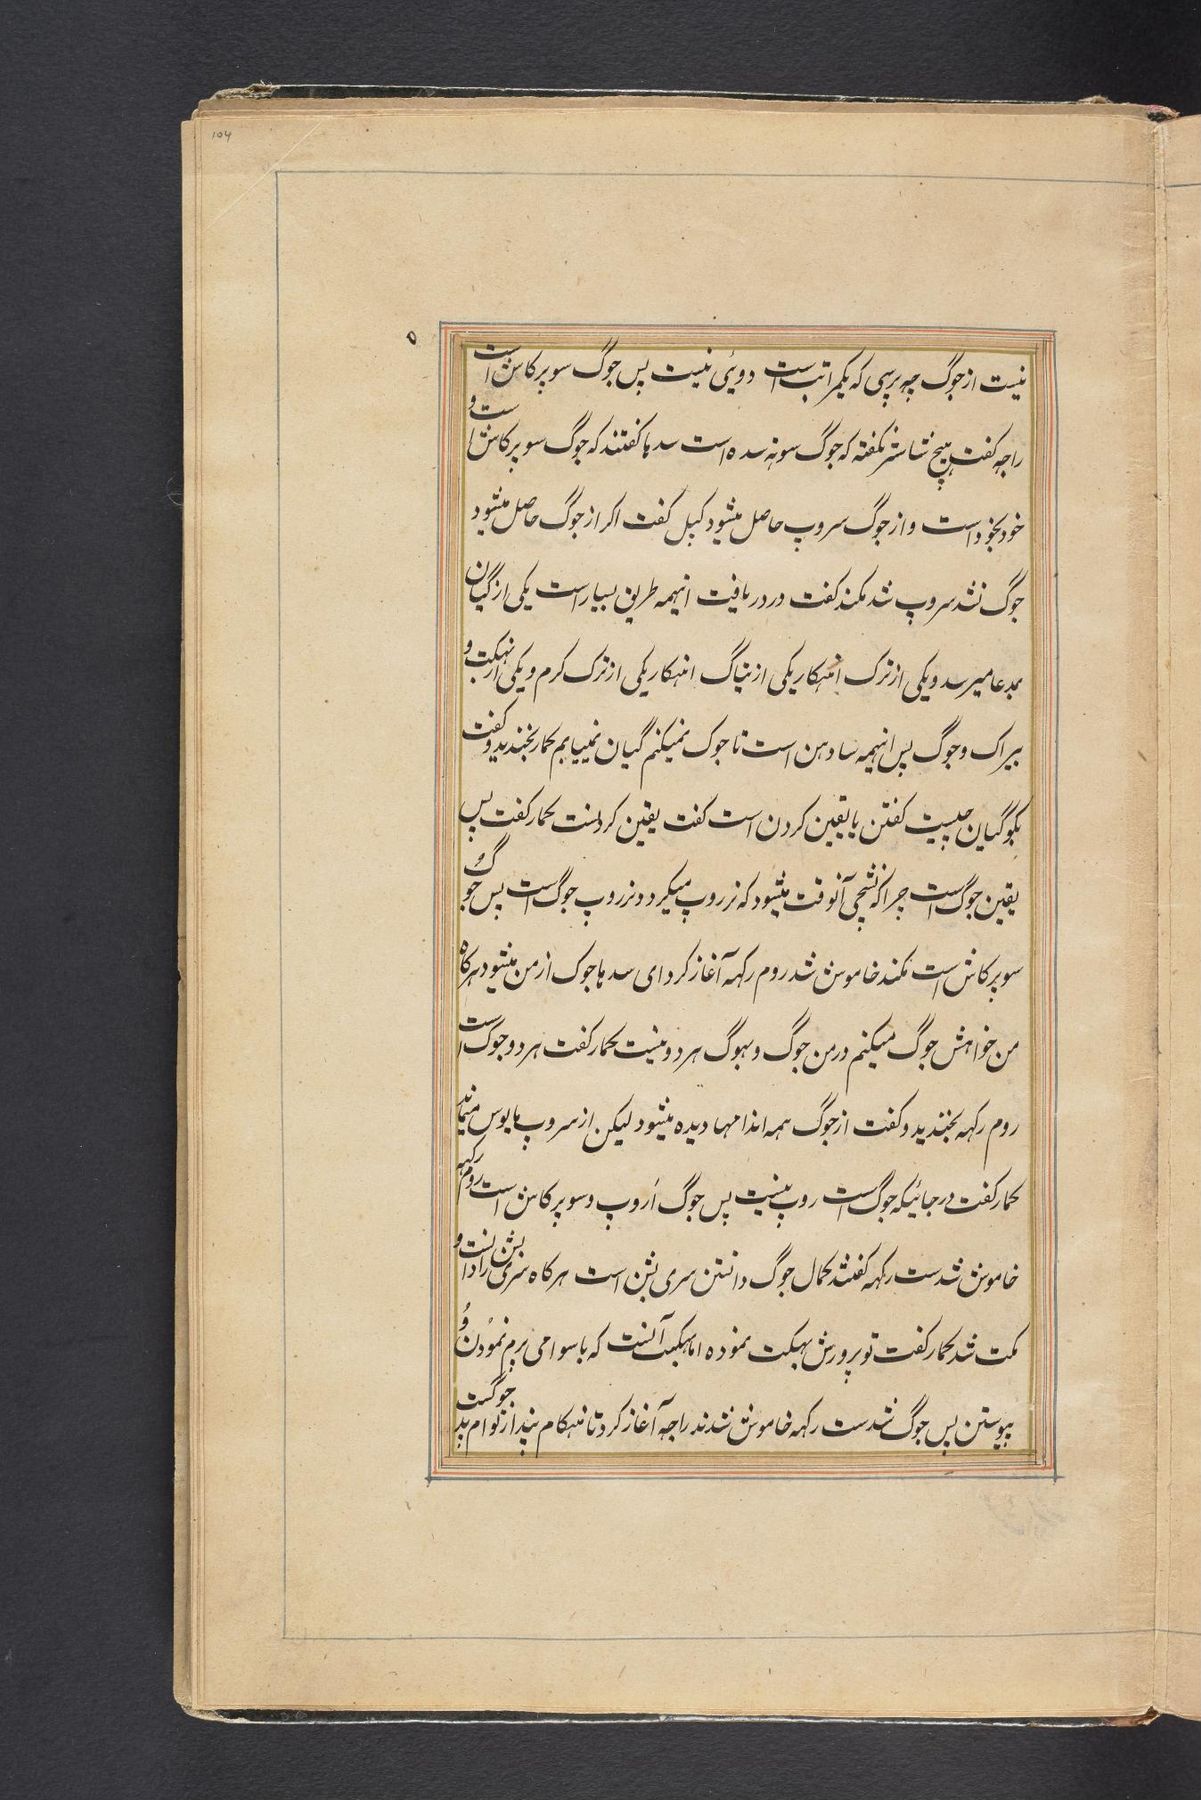 104
نیست از جوگ چه پرسی که یکمراتب است دویی نیست پس جوگ سوپرکاش است
راجه گفت هیچ شاستر نگفته که جوگ سونه سده است سدها گفتند که جوگ سوپرکاش است و
خود بخود است و از جوگ سروپ حاصل میشود کپل گفت اکر از جوگ حاصل میشود
جوگ نشد سروپ شد مکند گفت در دریافت اینهمه طریق بسیار است یکی از گیان
بمدعا میرسد و یکی از ترک اهنکار یکی از تیاگ اهنکار یکی از ترک کرم و یکی از بهکت و
بیراک و جوگ پس اینهمه سادهن است تا جوک نمیکنم گیان نمییابم کمار بخندید و گفت
بگو گیان چیست گفتن یا یقین کردن است گفت یقین کردنست کمار گفت پس
یقین جوگ است چرا که نشچی آنوقت میشود که نرروپ میکردد و نرروپ جوگ است پس جوگ
سوپرکاش است مکند خاموش شد روم رکهه آغاز کرد ای سدها جوک از من میشود هرکاه
من خواهش جوگ میکنم در من جوگ و بهوگ هر دو نیست کمار گفت هر دو جوگ است
روم رکهه بخندید و گفت از جوگ همه اندامها دیده میشود لیکن از سروپ مایوس میماند
کمار گفت در جائیکه جوگ است روپ نیست پس جوگ اَروپ و سوپرکاش است روم رکهه
خاموش شد ست رکهه گفتند کمال جوگ دانستن سری بشن است هرکاه سری بشن را دانست و
مکت شد کمار گفت تو پرورش بهکت نموده اما بهکت آنست که با سوامی پریم نمودن و
پیوستن پس جوگ شد ست رکهه خاموش شدند راجه آغاز کرد تا